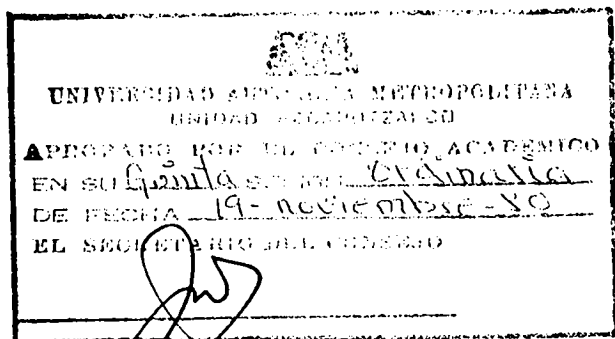 UNIVERSIDAD AUTONOMA METROPOLITANA
UNIDAD AZCAPOTZALCO
APROBADO POR EL CONSEJO ACADEMICO
EN SU Quinta SESION Ordinaria
DE FECHA 19-noviembre-80
EL SECRETARIO DEL CONSEJO